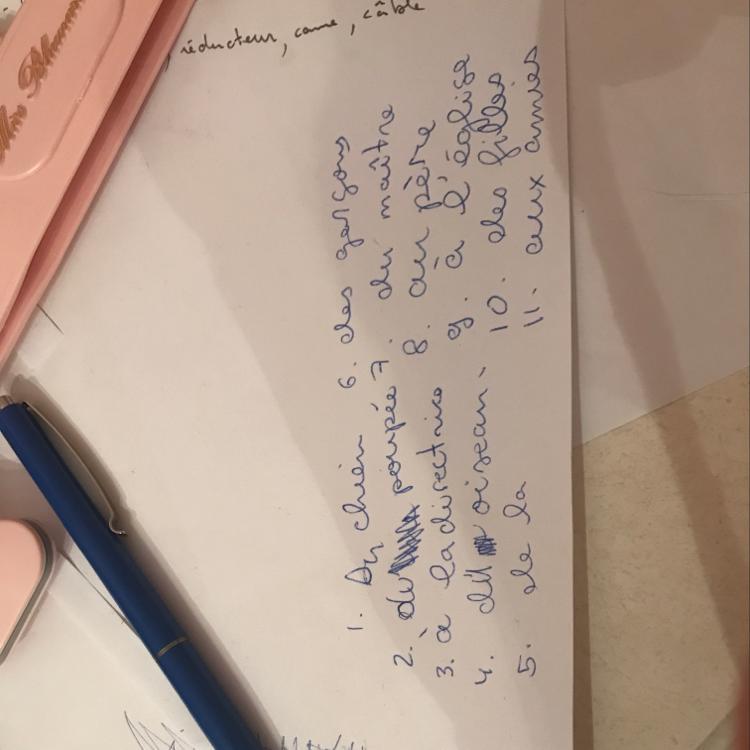 , réducteur, came, câble
1. Du chien
2. du poupée
3. à la directrice
4. du oiseau.
5. de la
6. des garçons
7. du maître
8. au père
9. à l'église
10. des filles
11. aux amies